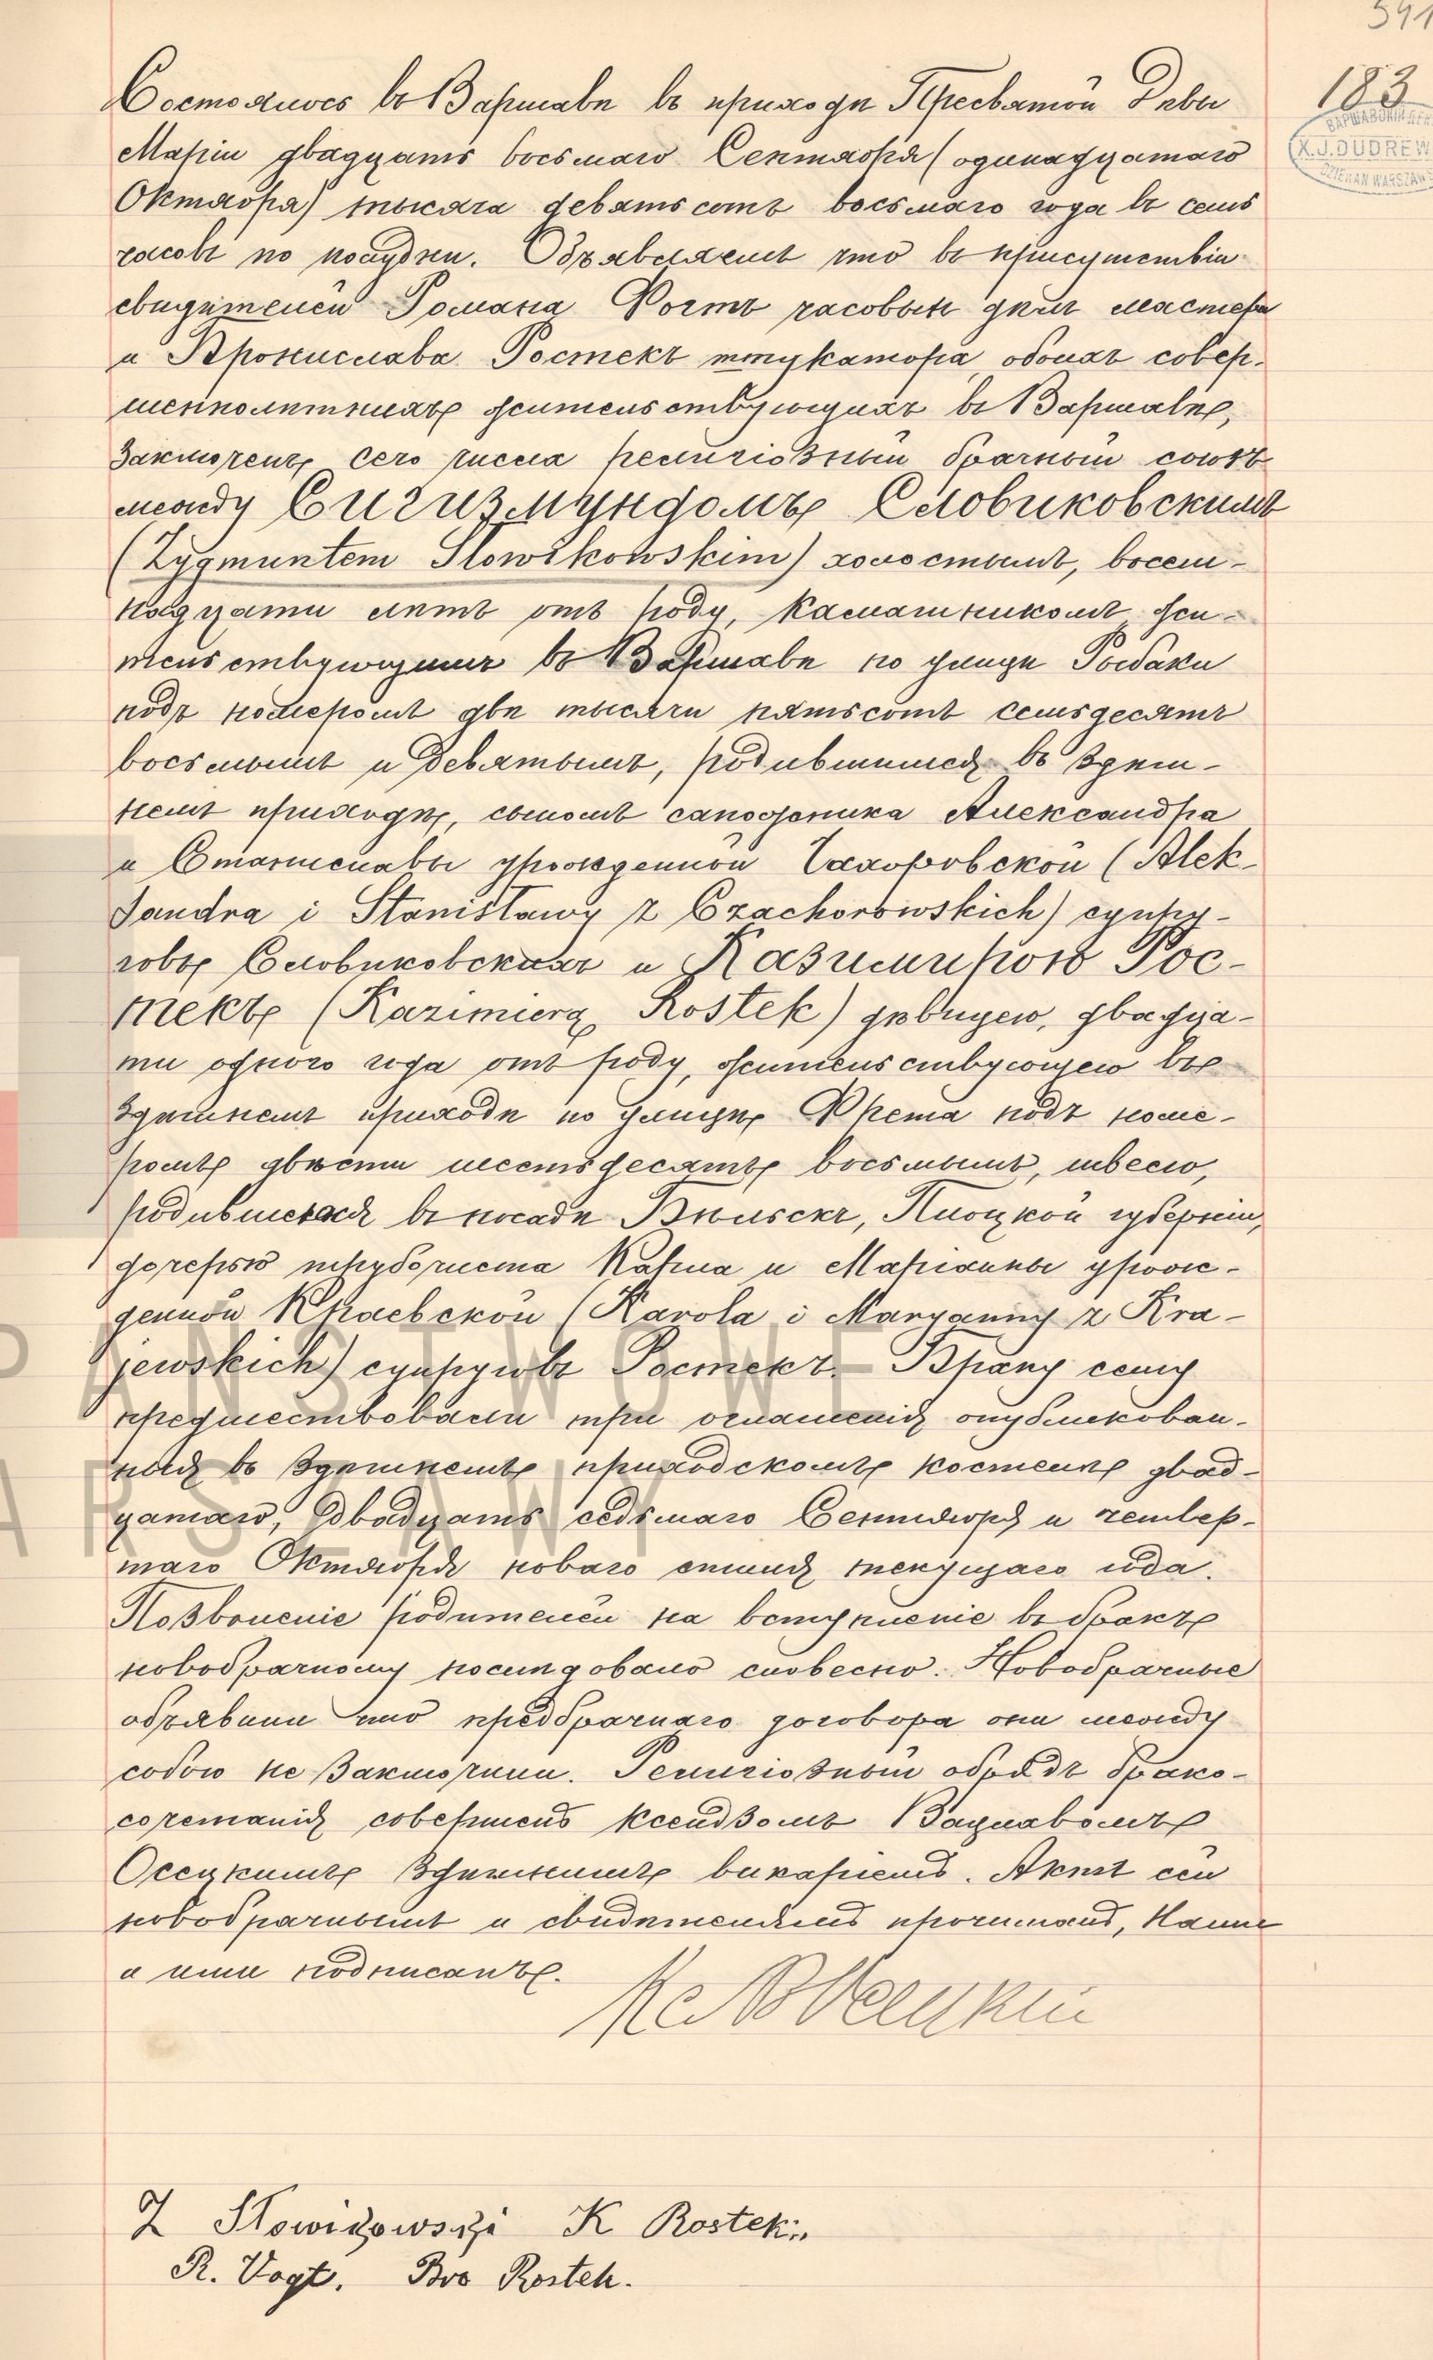 541
183
Состоялось въ Варшавѣ въ приходѣ Пресвятой Дѣвы
Маріи двадцать восьмаго Сентября (одинадцатаго
Октября) тысяча девятьсотъ восьмаго года въ семь
часовъ по полудни. Объявляемъ что въ присутствіи
свидѣтелей Романа Фогтъ часовыхъ дѣлъ мастера
и Бронислава Ростекъ штукатора, обоихъ совер-
шеннолѣтнихъ жительствующихъ въ Варшавѣ,
заключенъ сего числа религіозный брачный союзъ
между Сигизмундомъ Словиковскимъ
(Zygmuntem Słowikowskim) холостымъ, восем-
надцати лѣтъ отъ роду, камашникомъ жи-
тельствующимъ въ Варшавѣ по улицѣ
подъ номеромъ двѣ тысячи пятьсотъ семьдесятъ
восьмымъ и девятымъ, родившимся въ здѣш-
немъ приходѣ, сыномъ сапожника Александра
и Станиславы урожденной Чахоровской (Alek-
sandra i Stanisławy z Czachorowskich) супру-
говъ Словиковскихъ и Казимирою Рос-
текъ (Kazimierą Rostek) дѣвицею, двадца-
ти одного года отъ роду, жительствующею въ
здѣшнемъ приходѣ по улицѣ Фрета подъ номе-
ромъ двѣсти шестьдесятъ восьмымъ, швеею,
родившеюся въ посадѣ Плоцкой губерніи,
дочерью трубочиста Карла и Маріанны урож-
денной Краевской (Karola i Maryanny z Kra-
jewskich) супруговъ Ростекъ. – Браку сему
предшествовали три оглашенія опубликован-
ныя въ здѣшнемъ приходскомъ костелѣ двад-
цатаго, двадцать седьмаго Сентября и четвер-
таго Октября новаго стиля текущаго года.
Позволеніе родителей на вступленіе въ бракъ
новобрачному послѣдовало словесно. Новобрачные
объявили что предбрачнаго договора они между
собою не заключили. Религіозный обрядъ брако-
сочетанія совершенъ ксендзомъ Вацлавомъ
Осецкимъ здѣшнимъ викаріемъ. Актъ сей
новобрачнымъ и свидѣтелямъ прочитанъ, Нами
и ими подписанъ.
Z Słowikowski K Rostek
R. Vogt. Bro Rostek.